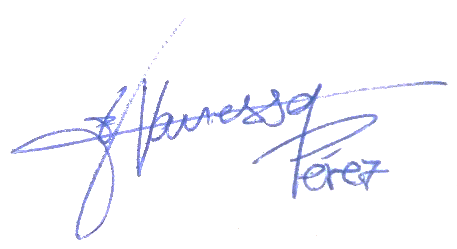 Vanessa
Pérez